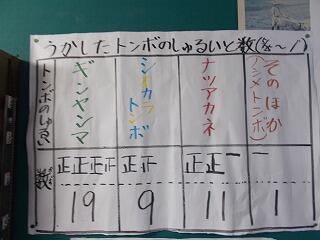 うかしたトンボのしゅるいと数(8/8〜/)
トンボのしゅるい
ギンヤンマ
シオカラトンボ
ナツアカネ
そのほか
(ノシメトンボ)
数
正正正正
正正
正正一
一
19
9
11
1